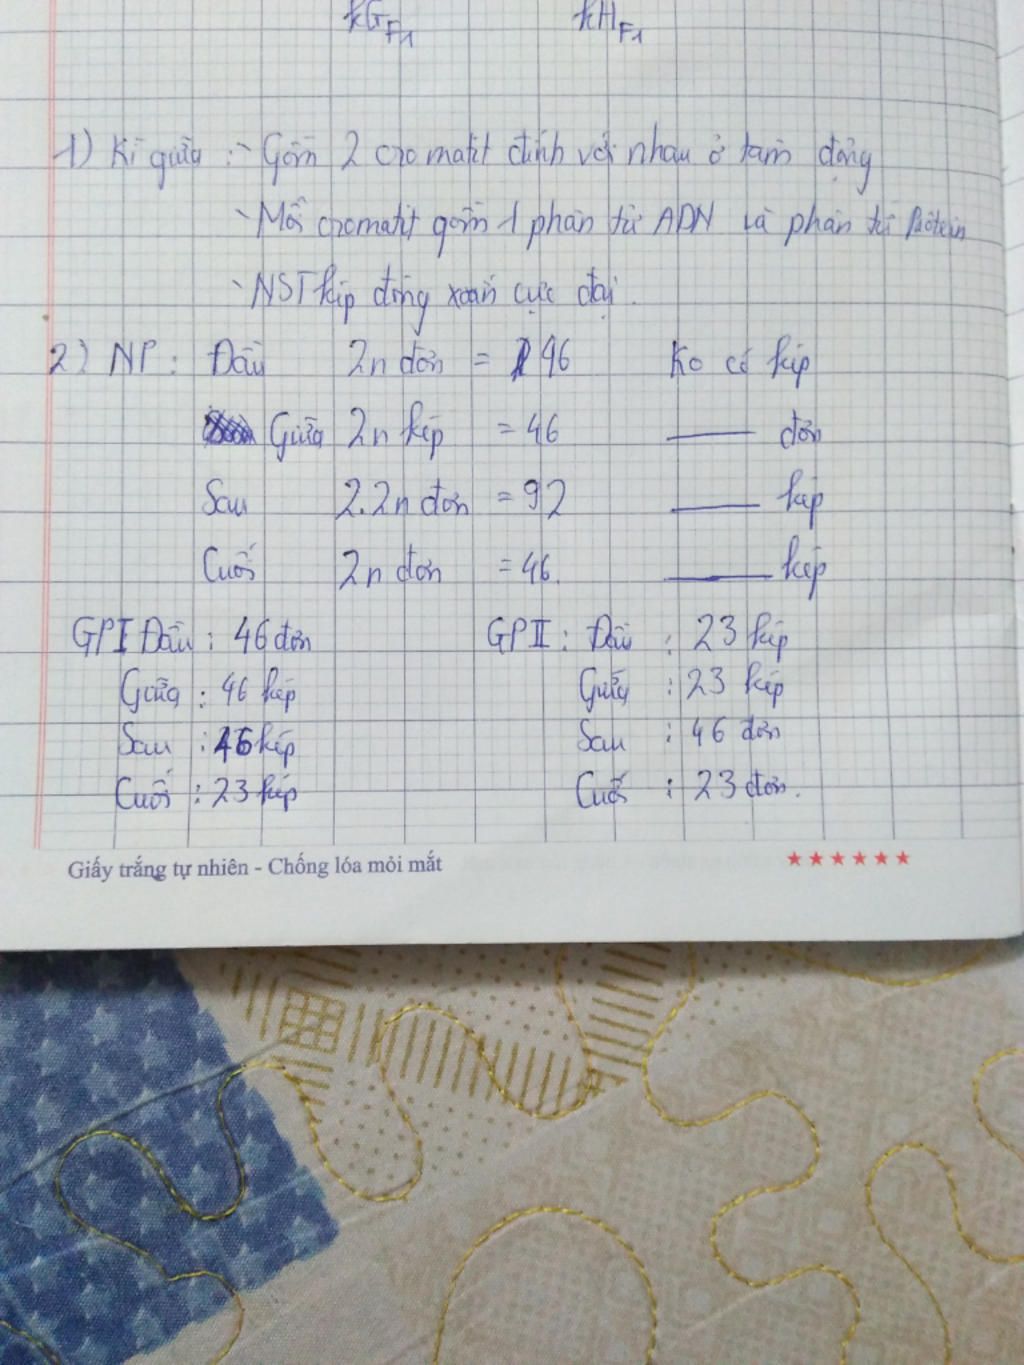 kG F1 kH F1
1) Kì giữa : - Gồm 2 cromatit dính với nhau ở tâm động
- Mỗi cromatit gồm 1 phân tử ADN và phân tử Prôtein
- NST kép đóng xoắn cực đại.
2) NP : Đầu 2n đơn = 46 Ko có kép
Giữa 2n kép = 46 —— đơn
Sau 2.2n đơn = 92 —— kép
Cuối 2n đơn = 46. —— kép
GPI Đầu : 46 đơn GPII : Đầu : 23 kép
Giữa : 46 kép Giữa : 23 kép
Sau : 46 kép Sau : 46 đơn
Cuối : 23 kép Cuối : 23 đơn.
Giấy trắng tự nhiên - Chống lóa mỏi mắt